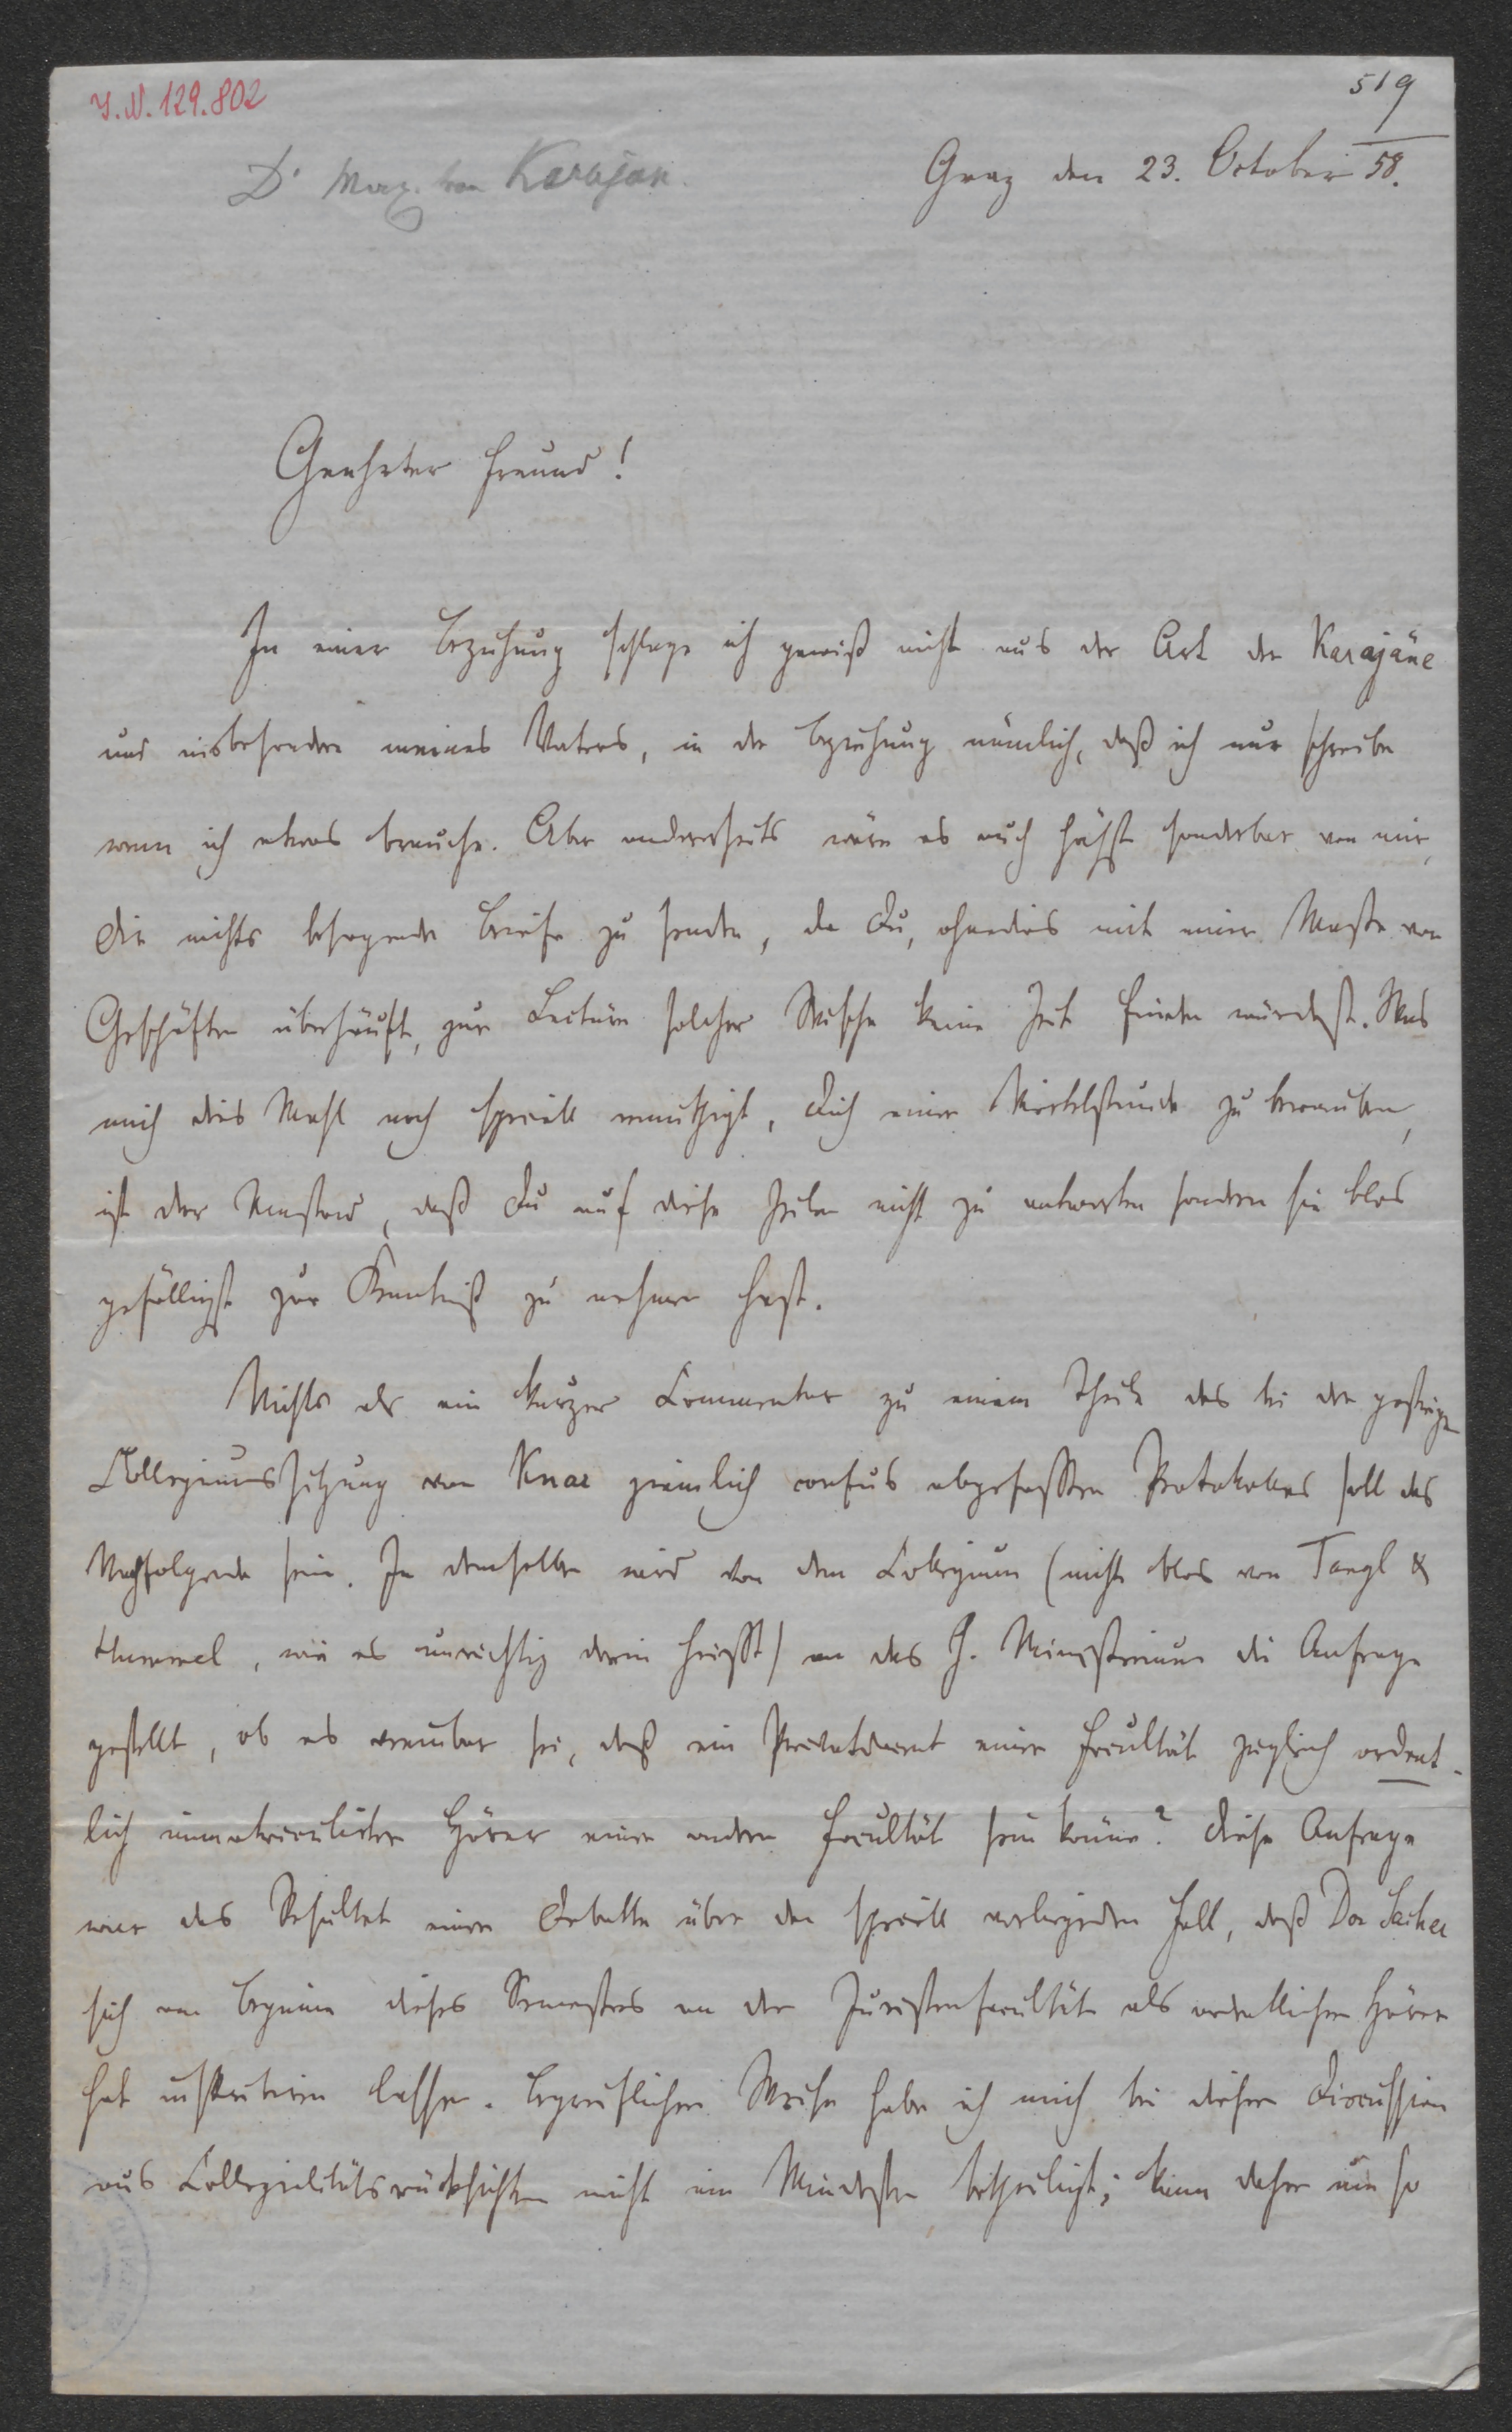 519
I.N. 129.802
Dr Max. von Karajan.
Graz den 23. October 58.
Geehrter Freund!
In einer Beziehung schlage ich gewiß nicht aus der Art der Karajäne
und insbesondere meines Vaters, in der Beziehung nämlich, daß ich nur schreibe
wenn ich etwas brauche. Aber anderseits wäre es auch höchst sonderbar von mir,
Dir nichts besagende Briefe zu senden, da Du, ohnedies mit einer Masse von
Geschäften überhäuft, zur Lectüre solcher Wische keine Zeit finden würdest. Was
mich dies Mahl noch speciell ermuthigt, Dich einer Viertelstunde zu berauben,
ist der Umstand, daß Du auf diese Zeilen nicht zu antworten sondern sie blos
gefälligst zur Kenntniß zu nehmen hast.
Nichts als ein kurzer Commentar zu einem Theile des bei der gestrigen
Collegiumssitzung von Knar ziemlich confus abgefassten Protokolles soll das
Nachfolgende sein. In demselben wird von dem Collegium (nicht blos von Tangl &
Hummel, wie es unrichtig darin heisst) an das h. Ministerium die Anfrage
gestellt, ob es vereinbar sei, daß ein Privatdocent einer Facultät zugleich ordent-
lich immatriculirter Hörer einer andern Facultät sein könne? Diese Anfrage
war das Resultat einer Debatte über den speciell vorliegenden Fall, daß Dor Sacher
sich am Beginn dieses Semesters an der Juristenfacultät als ordentlicher Hörer
hat inscribiren lassen. Begreiflicher Weise habe ich mich bei dieser Discussion
aus Collegialitätsrücksichten nicht im Mindesten betheiligt; kann daher um so